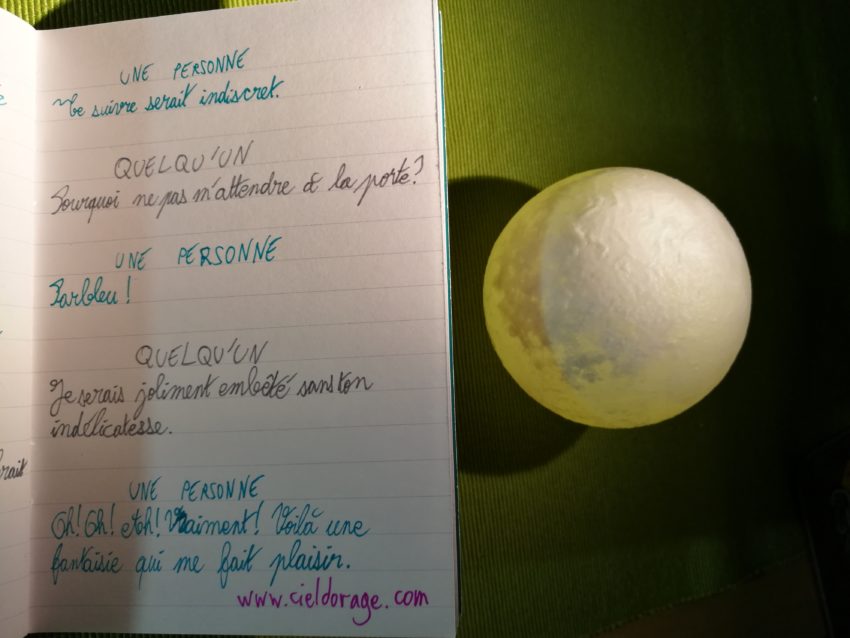 UNE PERSONNE
Te suivre serait indiscret.
QUELQU'UN
Pourquoi ne pas m'attendre à la porte?
UNE PERSONNE
Parbleu!
QUELQU'UN
Je serais joliment embêté sans ton
indélicatesse.
UNE PERSONNE
Oh! Oh! et oh! Vraiment! Voilà une
fantaisie qui me fait plaisir.
www.cieldorage.com